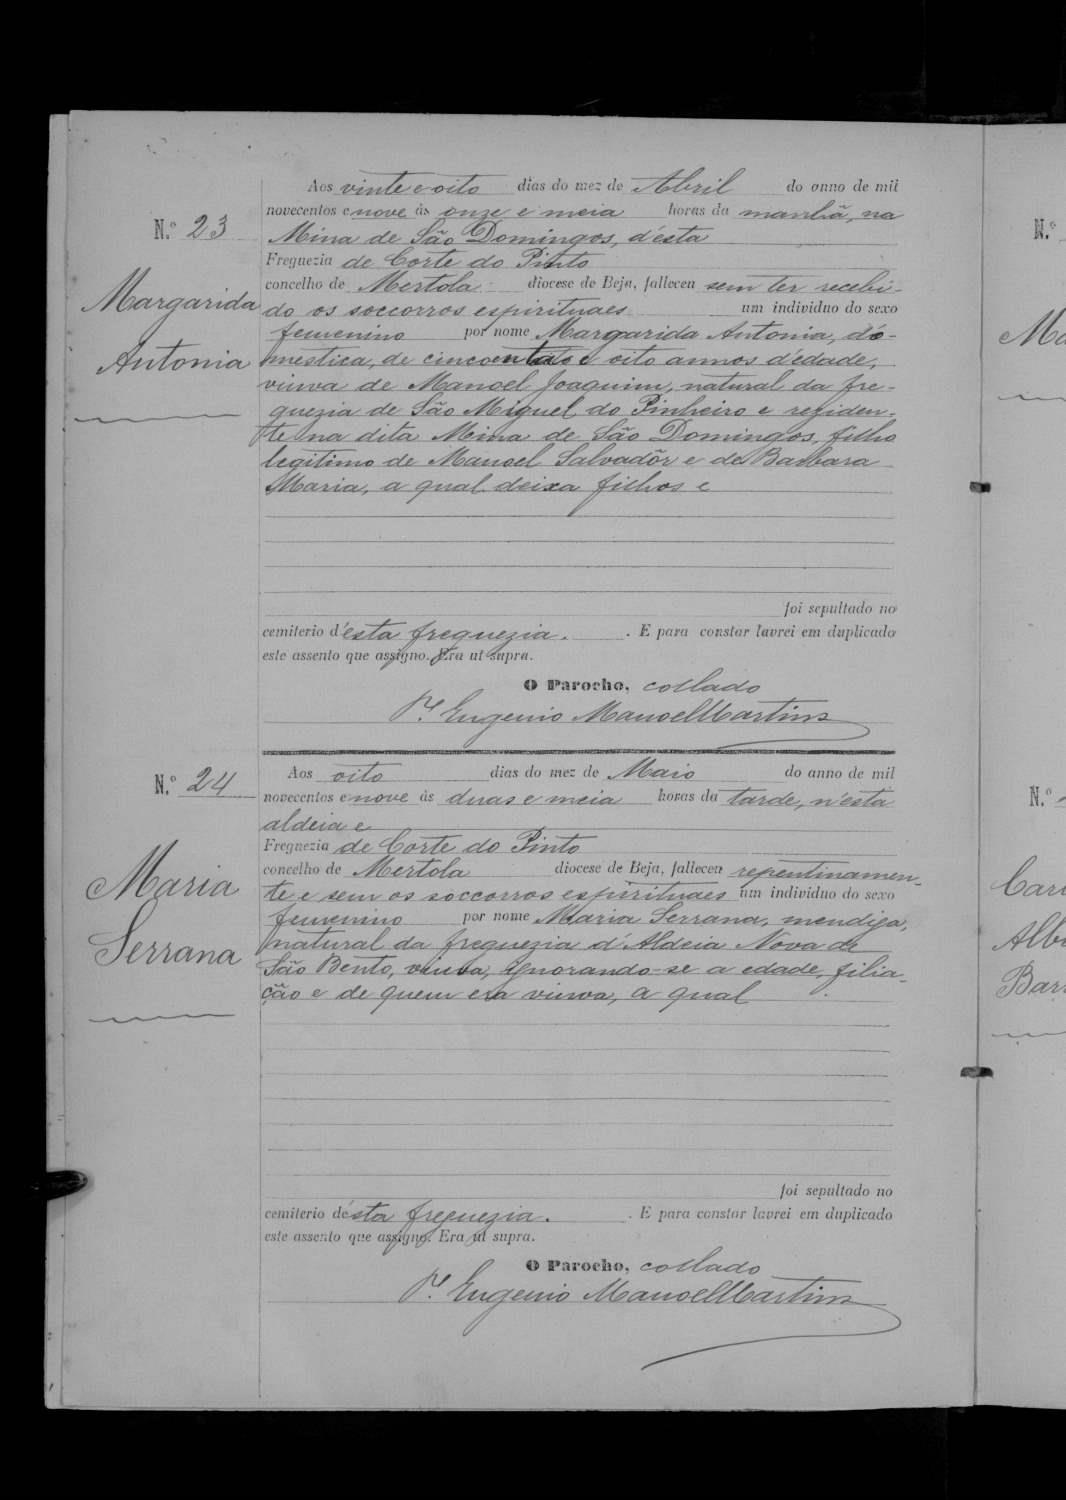 Aos vinte e oito dias do mez de Abril do anno de mil
novecentos e nove ás onze e meia horas da manhã, na
N.º 23
Mina de São Domingos, d'esta
Freguezia de Corte do Pinto
concelho de Mertola diocese de Beja, falleceu sem ter recebi-
Margarida
do os soccorros espirituaes um individuo do sexo
femenino por nome Margarida Antonia, do-
Antonia
mestica, de cincoenta e oito annos d'edade,
viuva de Manoel Joaquim, natural da fre-
guezia de São Miguel do Pinheiro e reziden-
te na dita Mina de São Domingos, filho
legitimo de Manoel Salvadôr e de Barbara
Maria, a qual deixa filhos e
foi sepultado no
cemiterio d'esta freguezia. . E para constar lavrei em duplicado
este assento que assigno. Era ut supra.
O Parocho, collado
Pe. Eugenio Manoel Martins
N.º 24
Aos oito dias do mez de Maio do anno de mil
novecentos e nove ás duas e meia horas da tarde, n'esta
aldeia e
Freguezia de Corte do Pinto
concelho de Mertola diocese de Beja, falleceu repentinamen-
Maria
te e sem os soccorros espirituaes um individuo do sexo
femenino por nome Maria Serrana, mendiga,
Serrana
natural da freguezia d'Aldeia Nova de
São Bento, viuva, ignorando-se a edade, filia-
ção e de quem era viuva, a qual
foi sepultado no
cemiterio d'esta freguezia. . E para constar lavrei em duplicado
este assento que assigno. Era ut supra.
O Parocho, collado
Pe. Eugenio Manoel Martins
N.º
Ma
N.º
Albi
Bar